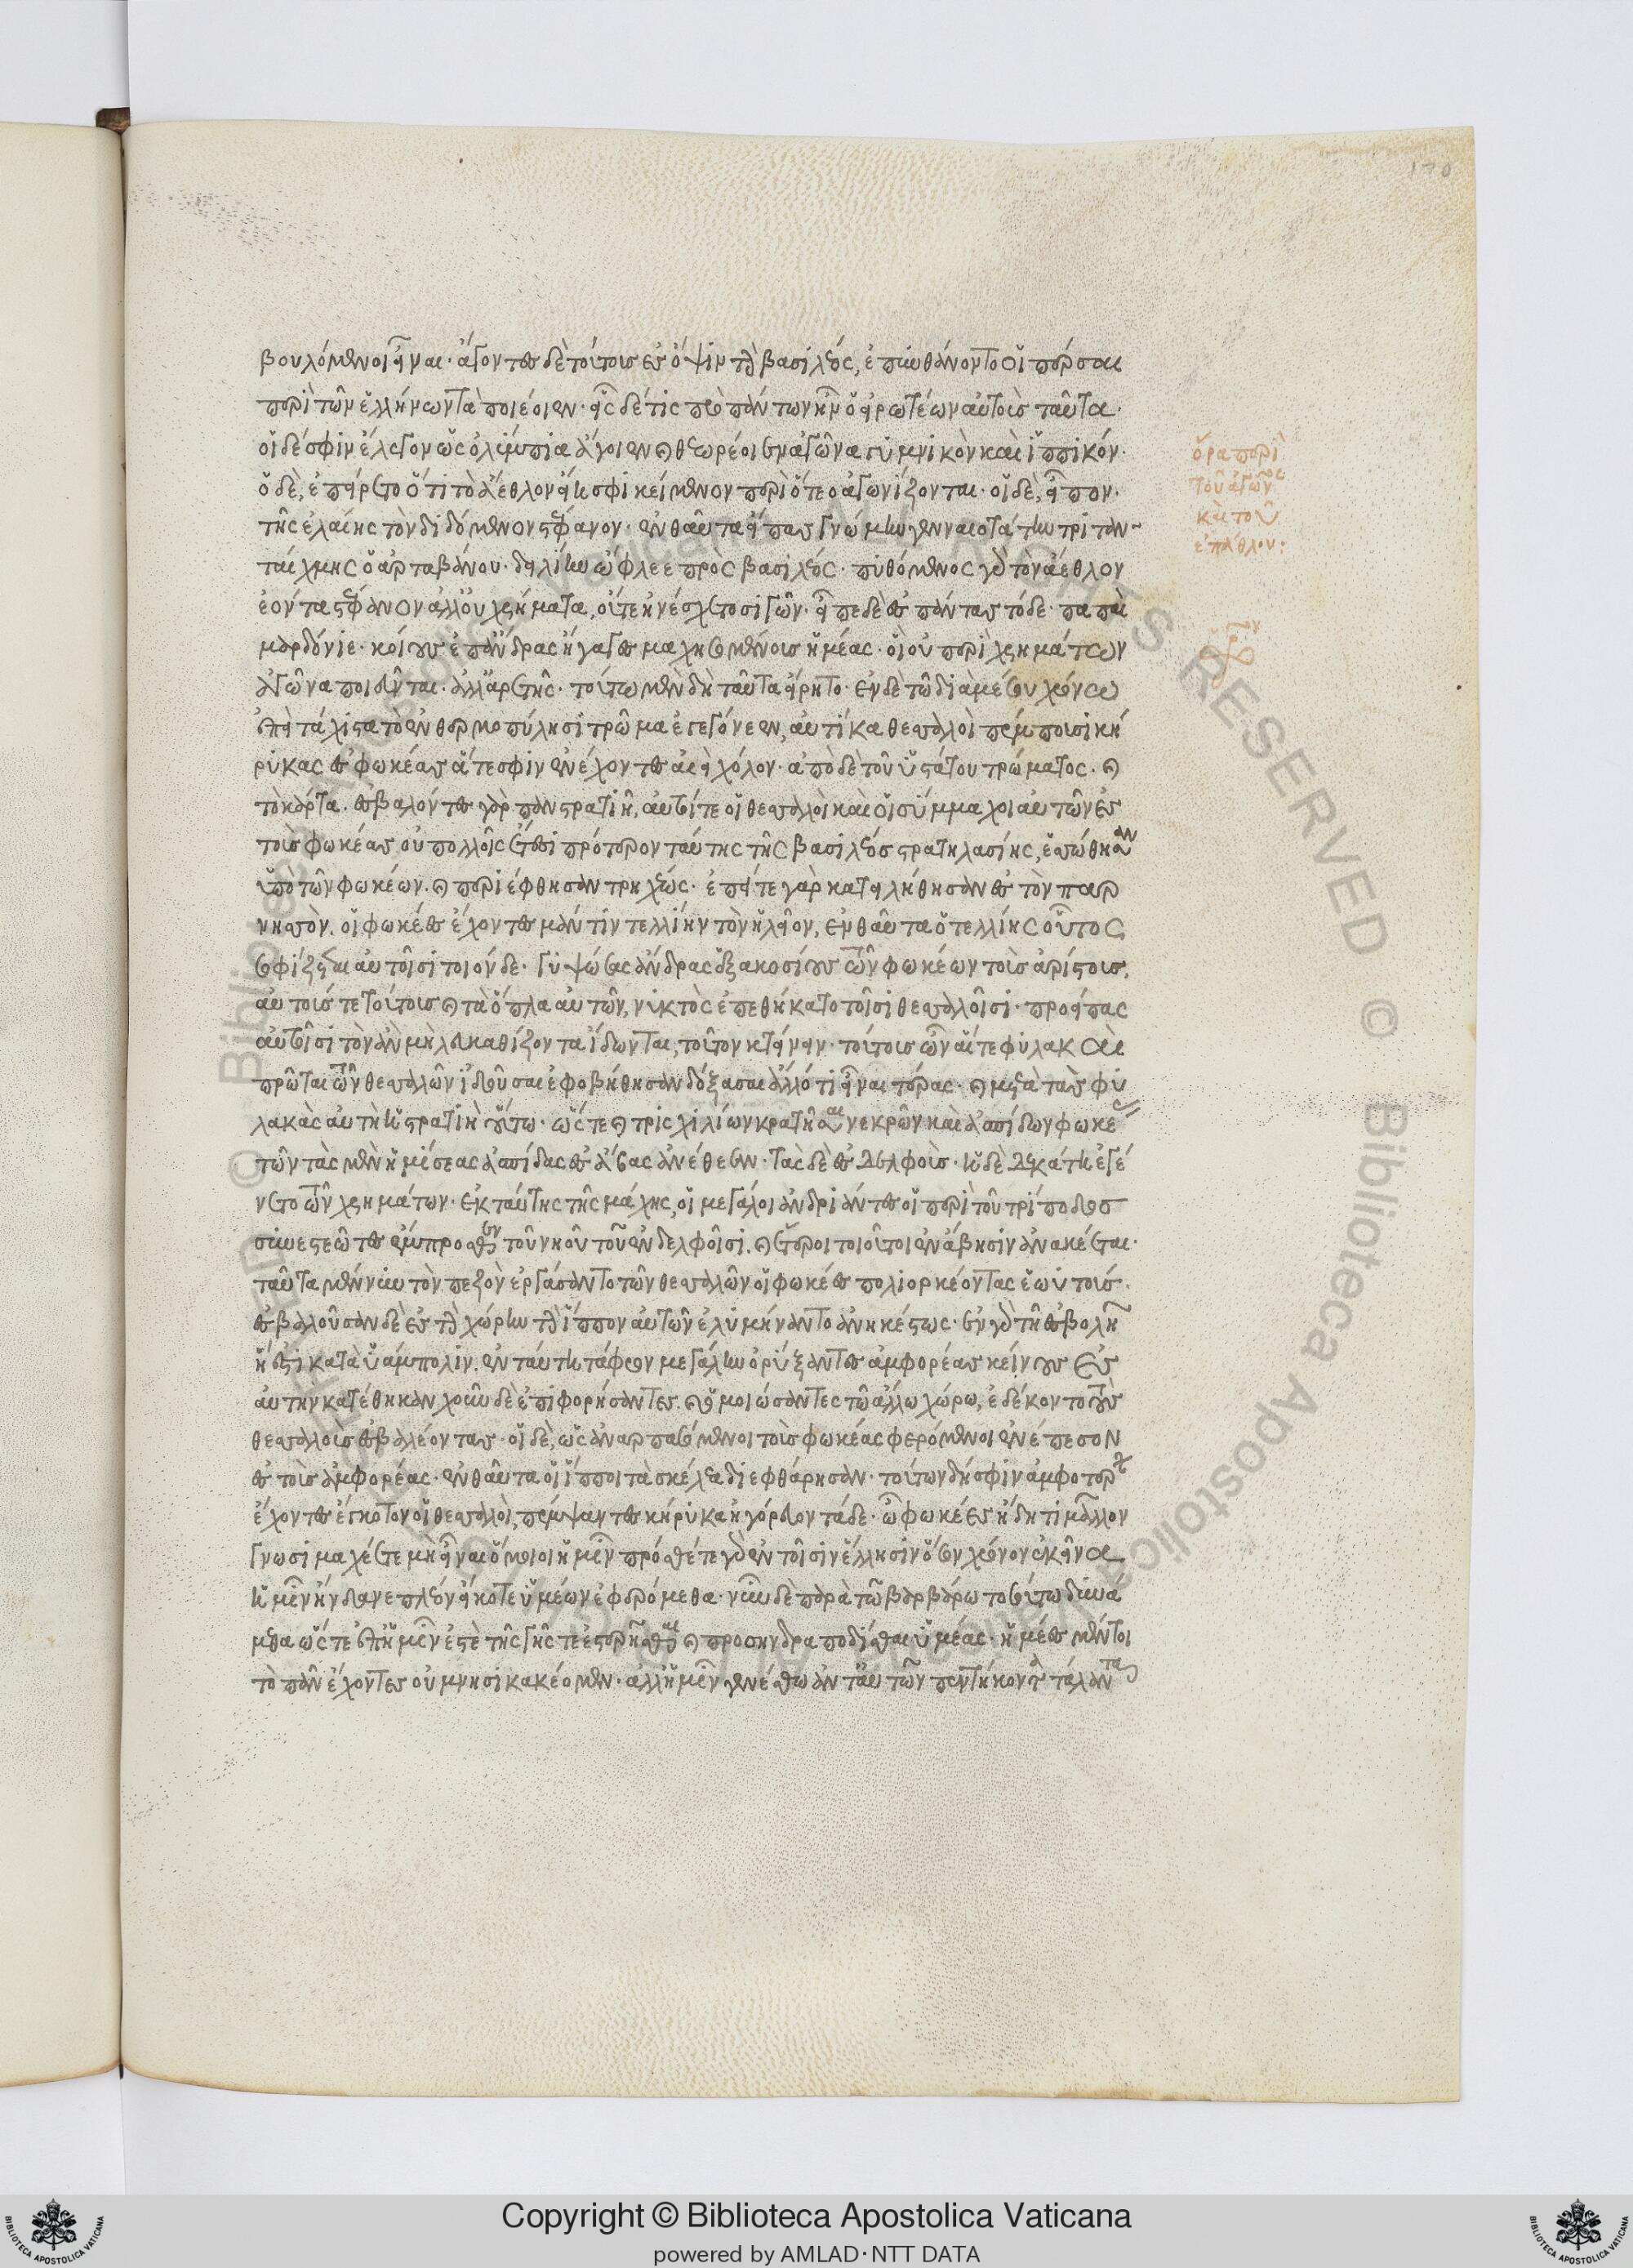 170
βουλόμενοι εἶναι· ἄγοντες δὲ τούτους ἐς ὄψιν τὴν βασιλέος, ἐπυνθάνοντο οἱ πέρσαι
περὶ τῶν ἑλλήνων τὰ ποιέοιεν· εἷς δέ τις πρὸ πάντων ἦν ὁ εἰρωτέων αὐτοὺς ταῦτα·
οἱ δέ σφιν ἔλεγον ὡς ὀλύμπια ἄγοιεν καὶ θεωρέοιεν ἀγῶνα γυμνικὸν καὶ ἱππικόν·
ὁ δὲ, ἐπείρετο ὅτι τὸ ἄεθλον εἴη σφι κείμενον περὶ ὅτεο ἀγωνίζονται· οἱ δὲ, εἶπον·
τῆς ἐλαίης τὸν διδόμενον στέφανον· ἐνθαῦτα εἴπας γνώμην γενναιοτάτην τριτὰν
ταίχμης ὁ ἀρταβάνου· δειλίην ὦφλεε πρὸς βασιλέος· πυθόμενος γὰρ τὸν ἄεθλον
ἐόντα στέφανον ἀλλ' οὐ χρήματα, οὔτε ἠνέσχετο σιγῶν· εἶπε δὲ ἐς πάντας τάδε· παπαὶ
μαρδόνιε· κοίους ἐπ' ἄνδρας ἤγαγες μαχησομένους ἡμέας· οἳ οὐ περὶ χρημάτων
ἀγῶνα ποιεῦνται· ἀλλ' ἀρετῆς· τούτω μὲν δὴ ταῦτα εἴρητο· ἐν δὲ τῶ διὰ μέσου χρόνω
ἐπεὶ τάχιστα τὸ ἐν θερμοπύλησι τρῶμα ἐγεγόνεεν, αὐτίκα θεσσαλοὶ πέμπουσι κή
ρυκας ἐς φωκέας ἅτε σφιν ἐνέχοντες αἰεὶ χόλον· ἀπὸ δὲ τοῦ ὑστάτου τρώματος· καὶ
τὸ κάρτα. ἐσβαλόντες γὰρ πανστρατιῆ, αὐτοί τε οἱ θεσσαλοὶ καὶ οἱ σύμμαχοι αὐτῶν ἐς
τοὺς φωκέας οὐ πολλοῖς ἔτεσι πρότερον ταύτης τῆς βασιλέος στρατηλασίης, ἑσσώθησαν
ὑπὸ τῶν φωκέων. καὶ περιέφθησαν τρηχέως· ἐπείτε γὰρ κατειλήθησαν ἐς τὸν παρ
νησὸν. οἱ φωκέες ἔχοντες μάντιν τελλίην τὸν ἠλεῖον, ἐνθαῦτα ὁ τελλίης οὗτος
σοφίζεται αὐτοῖσι τοιόνδε· γυψώσας ἄνδρας ἑξακοσίους τῶν φωκέων τοὺς ἀρίστους,
αὐτούς τε τούτους καὶ τὰ ὅπλα αὐτῶν, νυκτὸς ἐπεθήκατο τοῖσι θεσσαλοῖσι· προείπας
αὐτοῖσι τὸν ἂν μὴ λευκαθίζοντα ἴδωνται, τοῦτον κτείνειν· τούτους ὦν αἵ τε φύλακαι
πρῶται τῶν θεσσαλῶν ἰδοῦσαι ἐφοβήθησαν δόξασαι ἄλλο τι εἶναι τέρας· καὶ μετὰ τὰς φυ
λακὰς αὐτὴ ἡ στρατιὴ οὕτω· ὥστε καὶ τρισχιλίων κρατῆσαι νεκρῶν καὶ ἀσπίδων φωκέας
τῶν τὰς μὲν ἡμισέας ἀσπίδας ἐς ἄβας ἀνέθεσαν· τὰς δὲ ἐς δελφούς· ἡ δὲ δεκάτη ἐγέ
νετο τῶν χρημάτων· ἐκ ταύτης τῆς μάχης, οἱ μεγάλοι ἀνδριάντες οἱ περὶ τοῦ τρίποδος
συνεστεῶτες ἔμπροσθεν τοῦ νηοῦ τοῦ ἐν δελφοῖσι. καὶ ἕτεροι τοιοῦτοι ἐν ἄβησιν ἀνακέαται·
ταῦτα μέν νυν τὸν πεζὸν ἐργάσαντο τῶν θεσσαλῶν οἱ φωκέες πολιορκέοντας ἑωυτούς·
ἐσβαλοῦσαν δὲ ἐς τὴν χώρην τὴν ἵππον αὐτῶν ἐλυμήναντο ἀνηκέστως· ἐν γὰρ τῆ ἐσβολῆ
ἥ ἐστι κατὰ ὑάμπολιν. ἐν ταύτη τάφρον μεγάλην ὀρύξαντες ἀμφορέας κεινοὺς ἐς
αὐτὴν κατέθηκαν χοῦν δὲ ἐπιφορήσαντες. καὶ ὁμοιώσαντες τῶ ἄλλω χώρω, ἐδέκοντο τοὺς
θεσσαλοὺς ἐσβαλέοντας· οἱ δὲ, ὡς ἀναρπασόμενοι τοὺς φωκέας φερόμενοι ἐνέπεσον
ἐς τοὺς ἀμφορέας· ἐνθαῦτα οἱ ἵπποι τὰ σκέλεα διεφθάρησαν· τούτων δή σφιν ἀμφοτέρων
ἔχοντες ἔγκοτον οἱ θεσσαλοὶ, πέμψαντες κήρυκα ἠγόρευον τάδε· ὦ φωκέες ἤδη τι μᾶλλον
γνωσιμαχέετε μὴ εἶναι ὅμοιοι ἡμῖν πρόσθέ τε γὰρ ἐν τοῖσιν ἕλλησιν ὅσον χρόνον ἐκεῖνα
ἡμῖν ἥνδανε πλέον αἰεί κοτε ὑμέων ἐφερόμεθα· νῦν δὲ παρὰ τῶ βαρβάρω τοσούτω δυνά
μεθα ὥστε ἐπ' ἡμῖν ἐστὶ τῆς γῆς τε ἐστερῆσθαι καὶ προσηνδραποδίσθαι ὑμέας· ἡμέες μέντοι
τὸ πᾶν ἔχοντες οὐ μνησικακέομεν· ἀλλ' ἡμῖν γενέσθω ἀντ' αὐτῶν πεντήκοντα τάλαντα
ὅρα περὶ
τοῦ ἀγῶνος
καὶ τοῦ
ἐπάθλου:
Copyright © Biblioteca Apostolica Vaticana
powered by AMLAD·NTT DATA